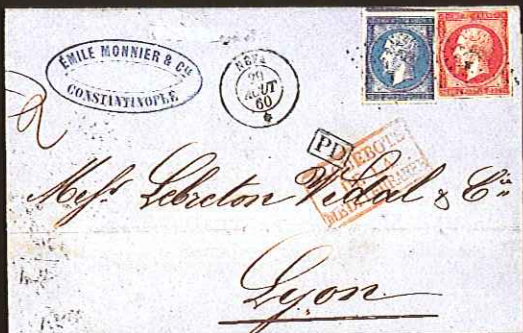 ÉMILE MONNIER & Cie
CONSTANTINOPLE
29
AOUT
60
PD
DE LA
Messrs Lebreton Vidal & Cie
Lyon